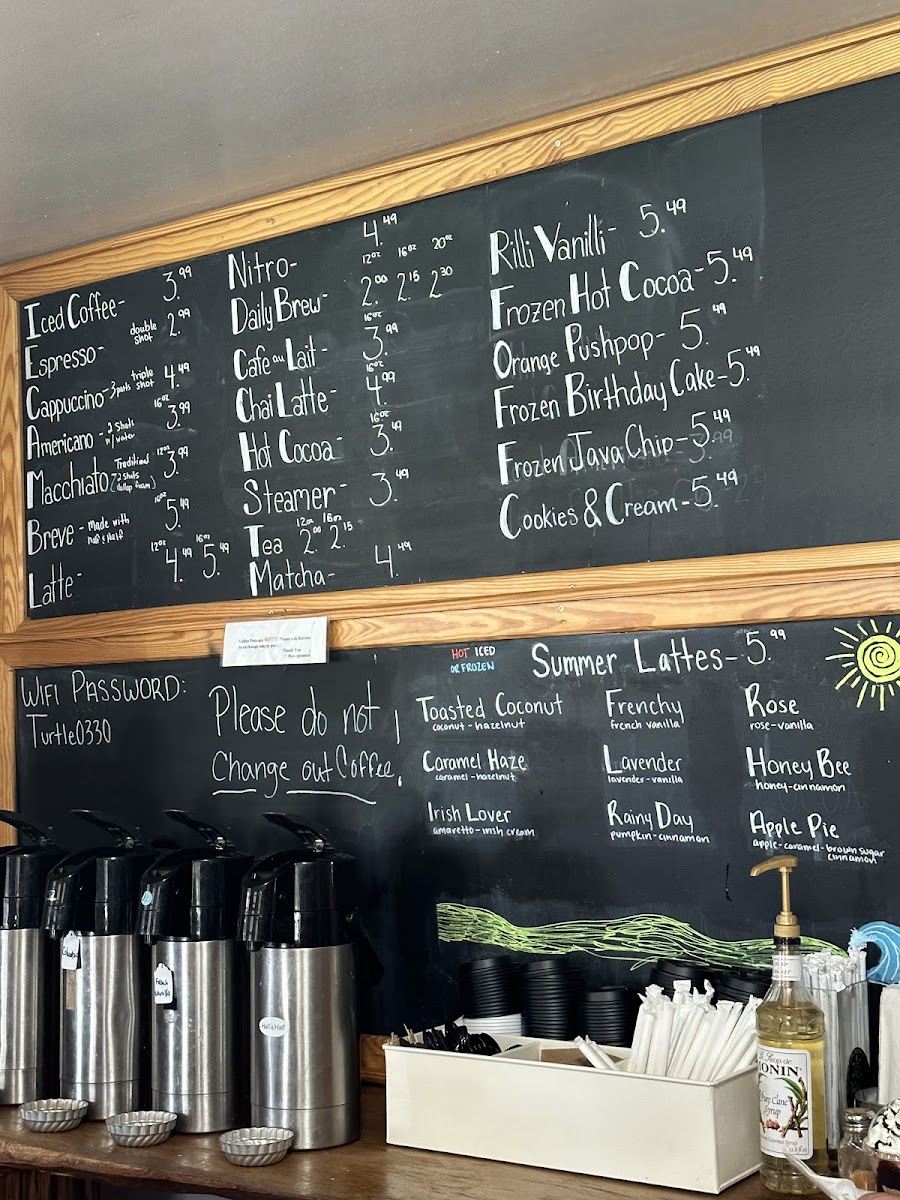 Iced Coffee- 3.99
Espresso- double shot 2.99
Cappuccino- 3 parts triple shot 4.49
Americano - 2 shots w/ water 16oz 3.99
Macchiato Traditional 12oz 3.99
Breve - Made with half & half 16oz 5.49
Latte- 12oz 4.49 16oz 5.49
Nitro- 4.49
12oz 16oz 20oz
Daily Brew- 2.00 2.15 2.30
Cafe au Lait- 16oz 3.99
Chai Latte- 16oz 4.99
Hot Cocoa- 16oz 3.49
Steamer- 3.49
Tea 12oz 2.00 16oz 2.15
Matcha- 4.49
Rilli Vanilli- 5.49
Frozen Hot Cocoa-5.49
Orange Pushpop- 5.49
Frozen Birthday Cake-5.49
Frozen Java Chip-5.49
Cookies & Cream-5.49
Thank You
Management
WIFI PASSWORD:
Turtle0330
Please do not
Change out Coffee!
HOT ICED
OR FROZEN
Summer Lattes- 5.99
Toasted Coconut
coconut-hazelnut
Caramel Haze
caramel-hazelnut
Irish Lover
amaretto-irish cream
Frenchy
french vanilla
Lavender
lavender-vanilla
Rainy Day
pumpkin-cinnamon
Rose
rose-vanilla
Honey Bee
honey-cinnamon
Apple Pie
apple-caramel-brown sugar
cinnamon
French
Vanilla
Half & Half
Le Sirop de
MONIN
Pure Cane
Syrup